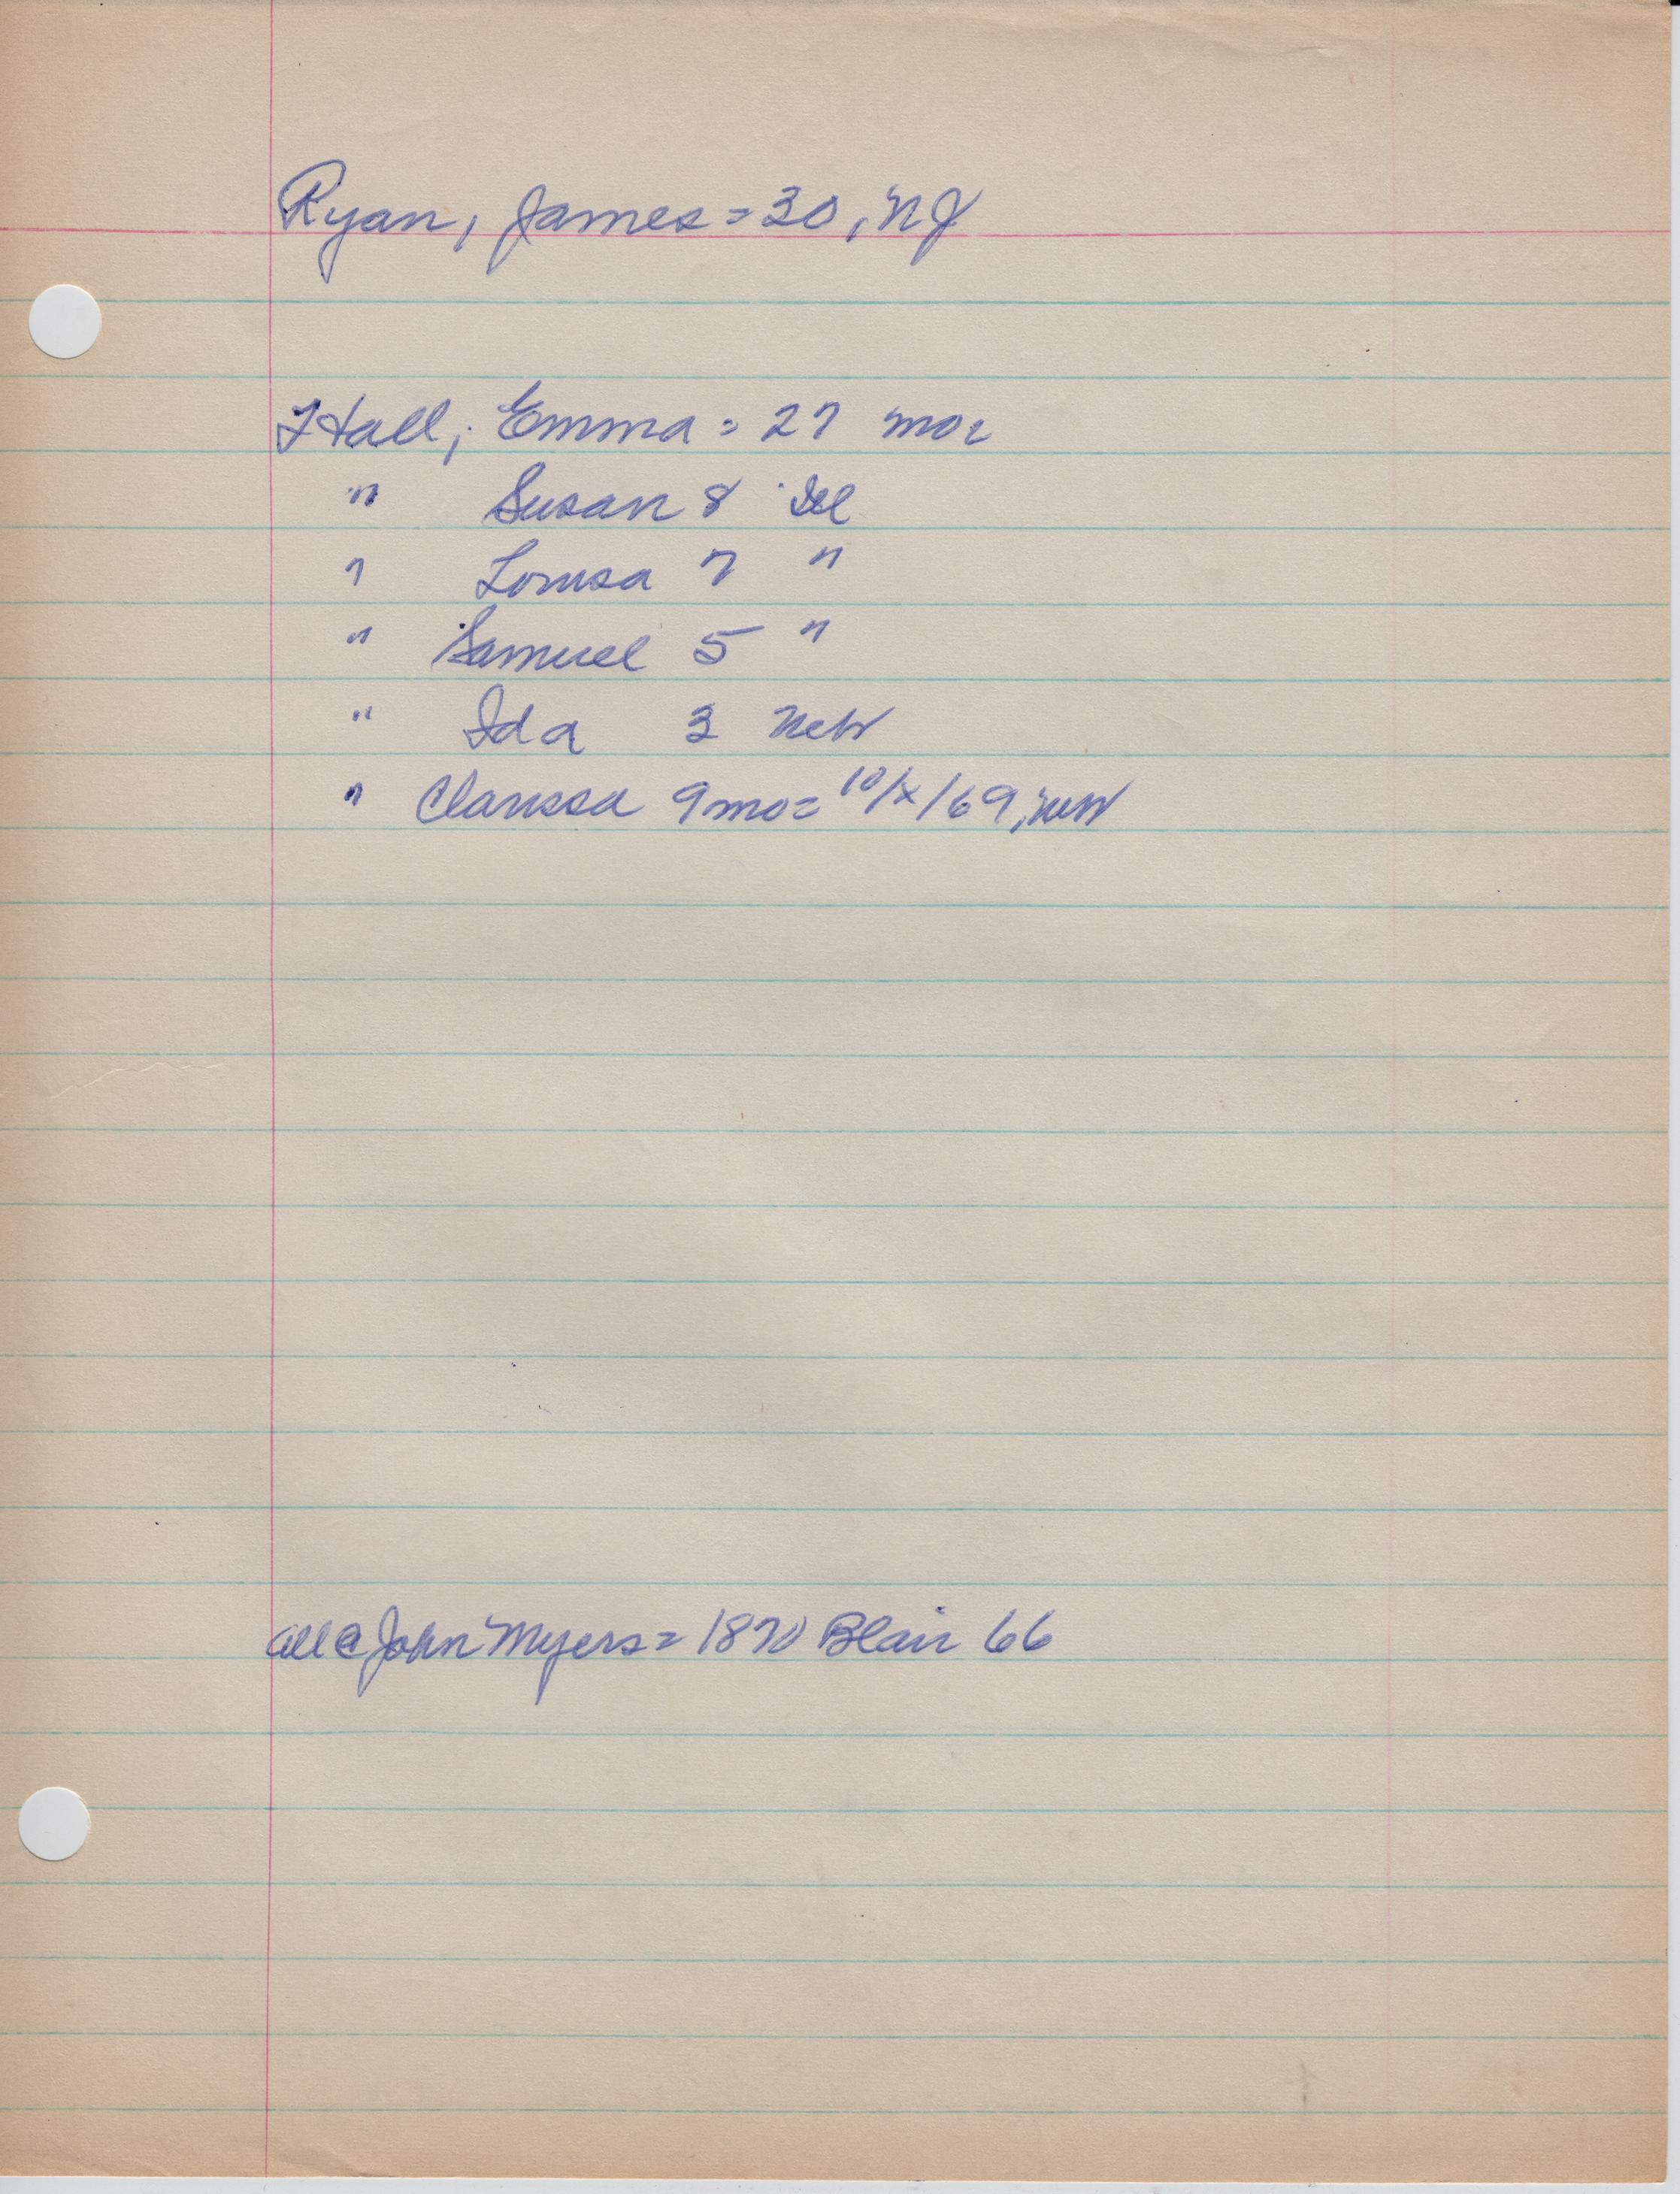 Ryan, James = 30, NJ
Hall, Emma = 27 Mo=
" Susan 8 Ill
" Louisa 7 "
" Samuel 5 "
" Ida 3 Neb
" Clarissa 9mo= 10/x/69, Neb
all @ John Myers = 1870 Blair 66